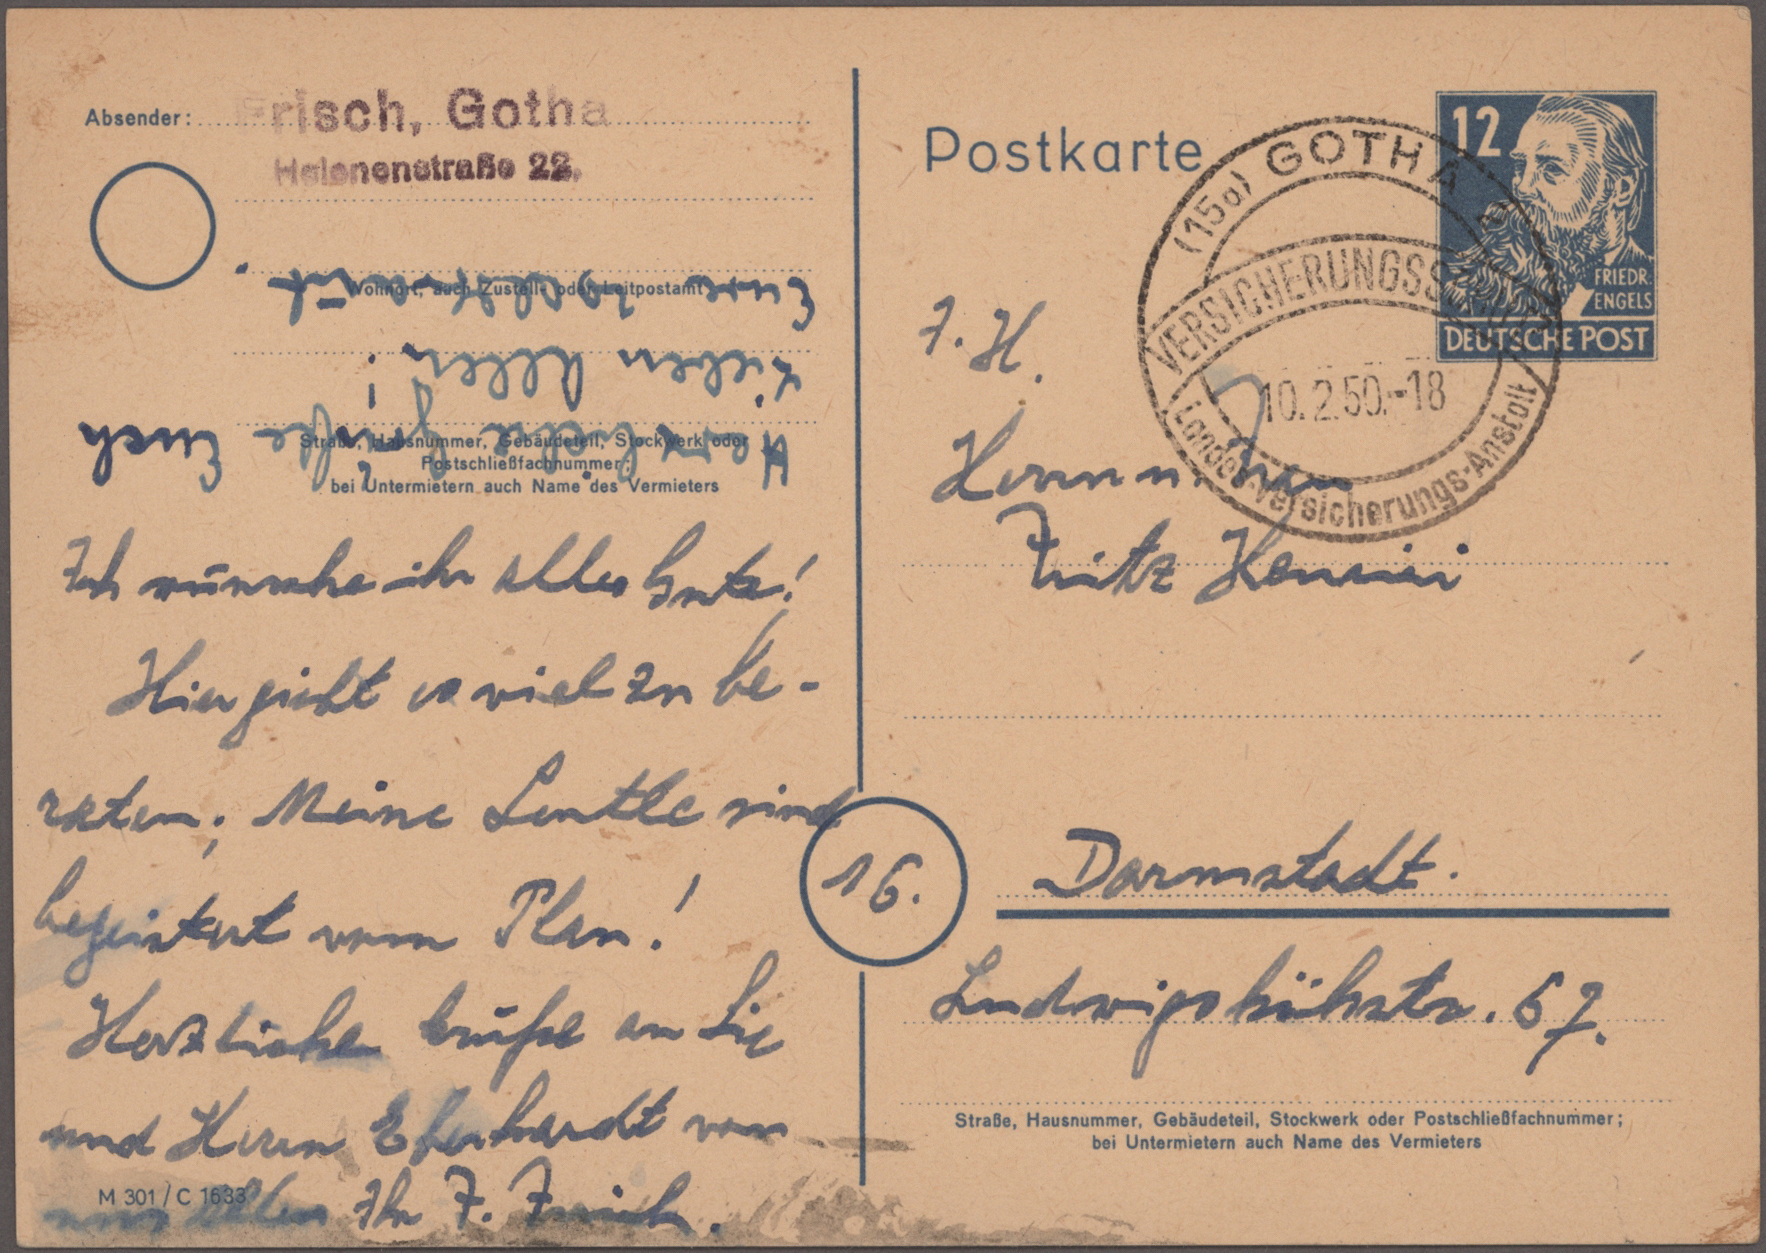 Absender:
Frisch, Gotha
Helenenstraße 22.
Wohnort, auch Zustell- oder Leitpostamt
Straße, Hausnummer, Gebäudeteil, Stockwerk oder
Postschließfachnummer;
bei Untermietern auch Name des Vermieters
Herzliche Grüße Euch
lieben Allen!
Eure
Ich wünsche ihr alles Gute!
Hier giebt es viel zu be-
raten. Meine Leutle sind
begeistert vom Plan!
Herzliche Grüße an Sie
und Herrn Eberhardt von
uns allen Ihr F. Frisch.
M 301/C 1633
Postkarte
12
FRIEDR.
ENGELS
DEUTSCHE POST
(15a) GOTHA 2
VERSICHERUNGSSCHUTZ
10.2.50.-18
Landes-Versicherungs-Anstalt
F. H.
Herrn u. Frau
Fritz
16.
Darmstadt.
Ludwigshöhstr. 57.
Straße, Hausnummer, Gebäudeteil, Stockwerk oder Postschließfachnummer;
bei Untermietern auch Name des Vermieters